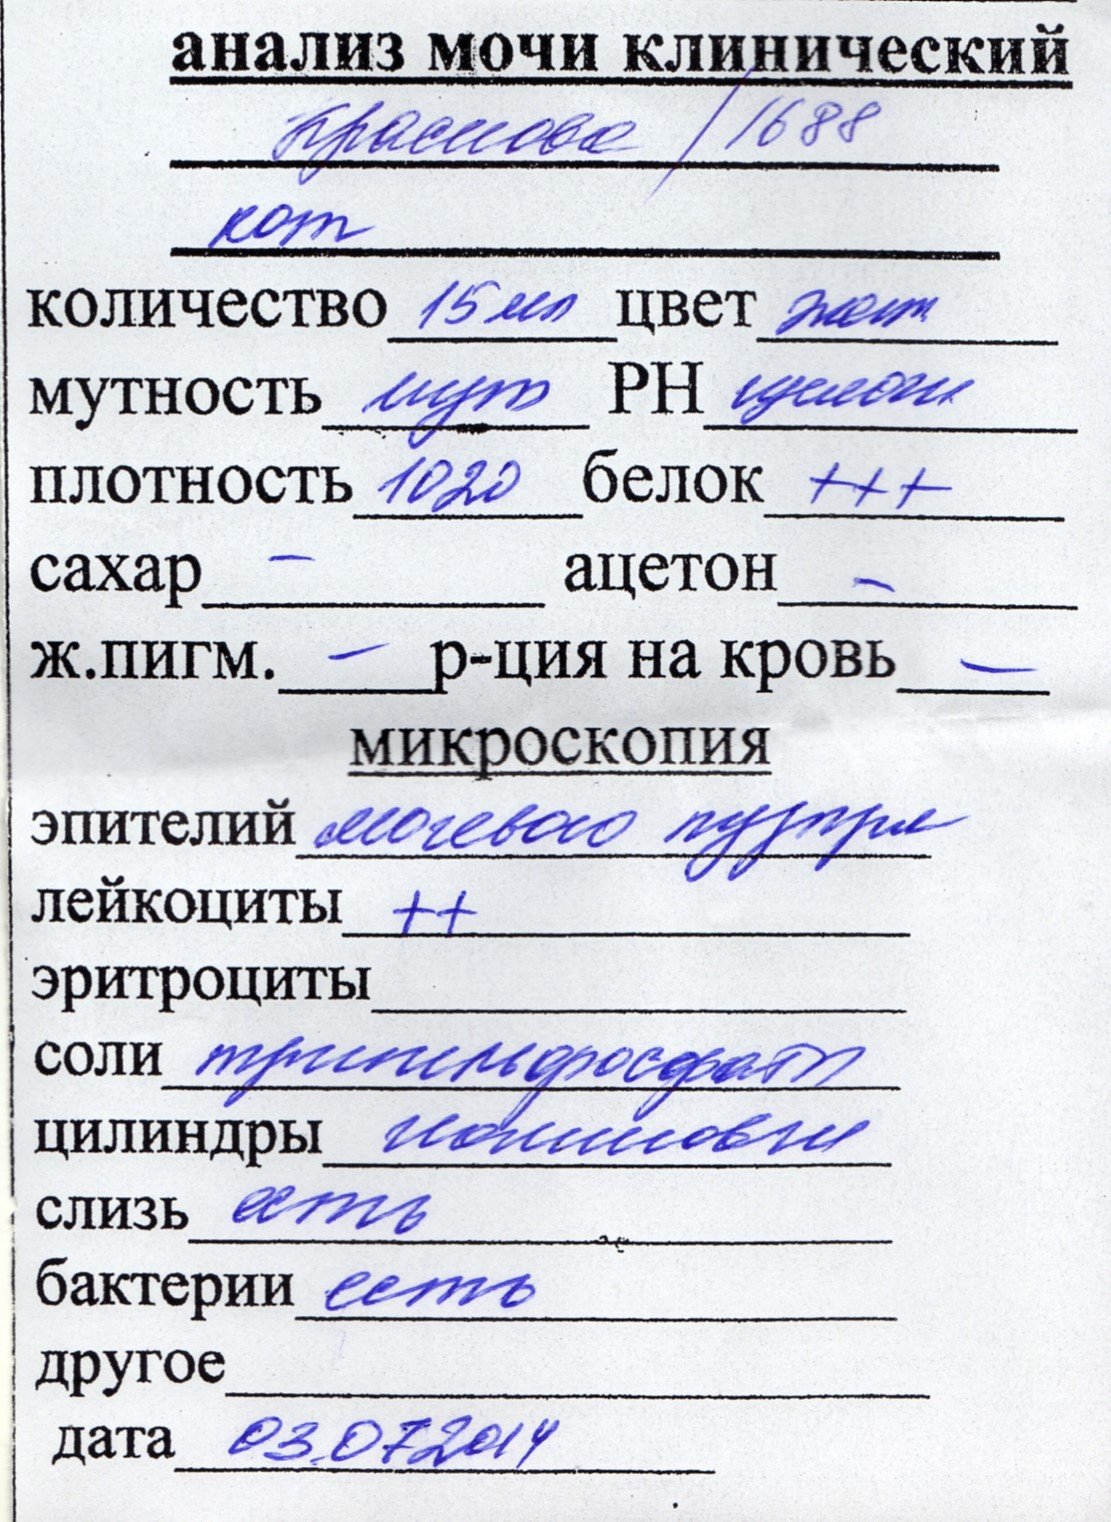 анализ мочи клинический
Краснова / 1688
кот
количество 15 мл цвет жёлт
мутность мут РН щелочн
плотность 1020 белок +++
сахар – ацетон –
ж.пигм. – р-ция на кровь –
микроскопия
эпителий мочевого пузыря
лейкоциты ++
эритроциты
соли трипельфосфаты
цилиндры
слизь есть
бактерии есть
другое
дата 03.07.2014